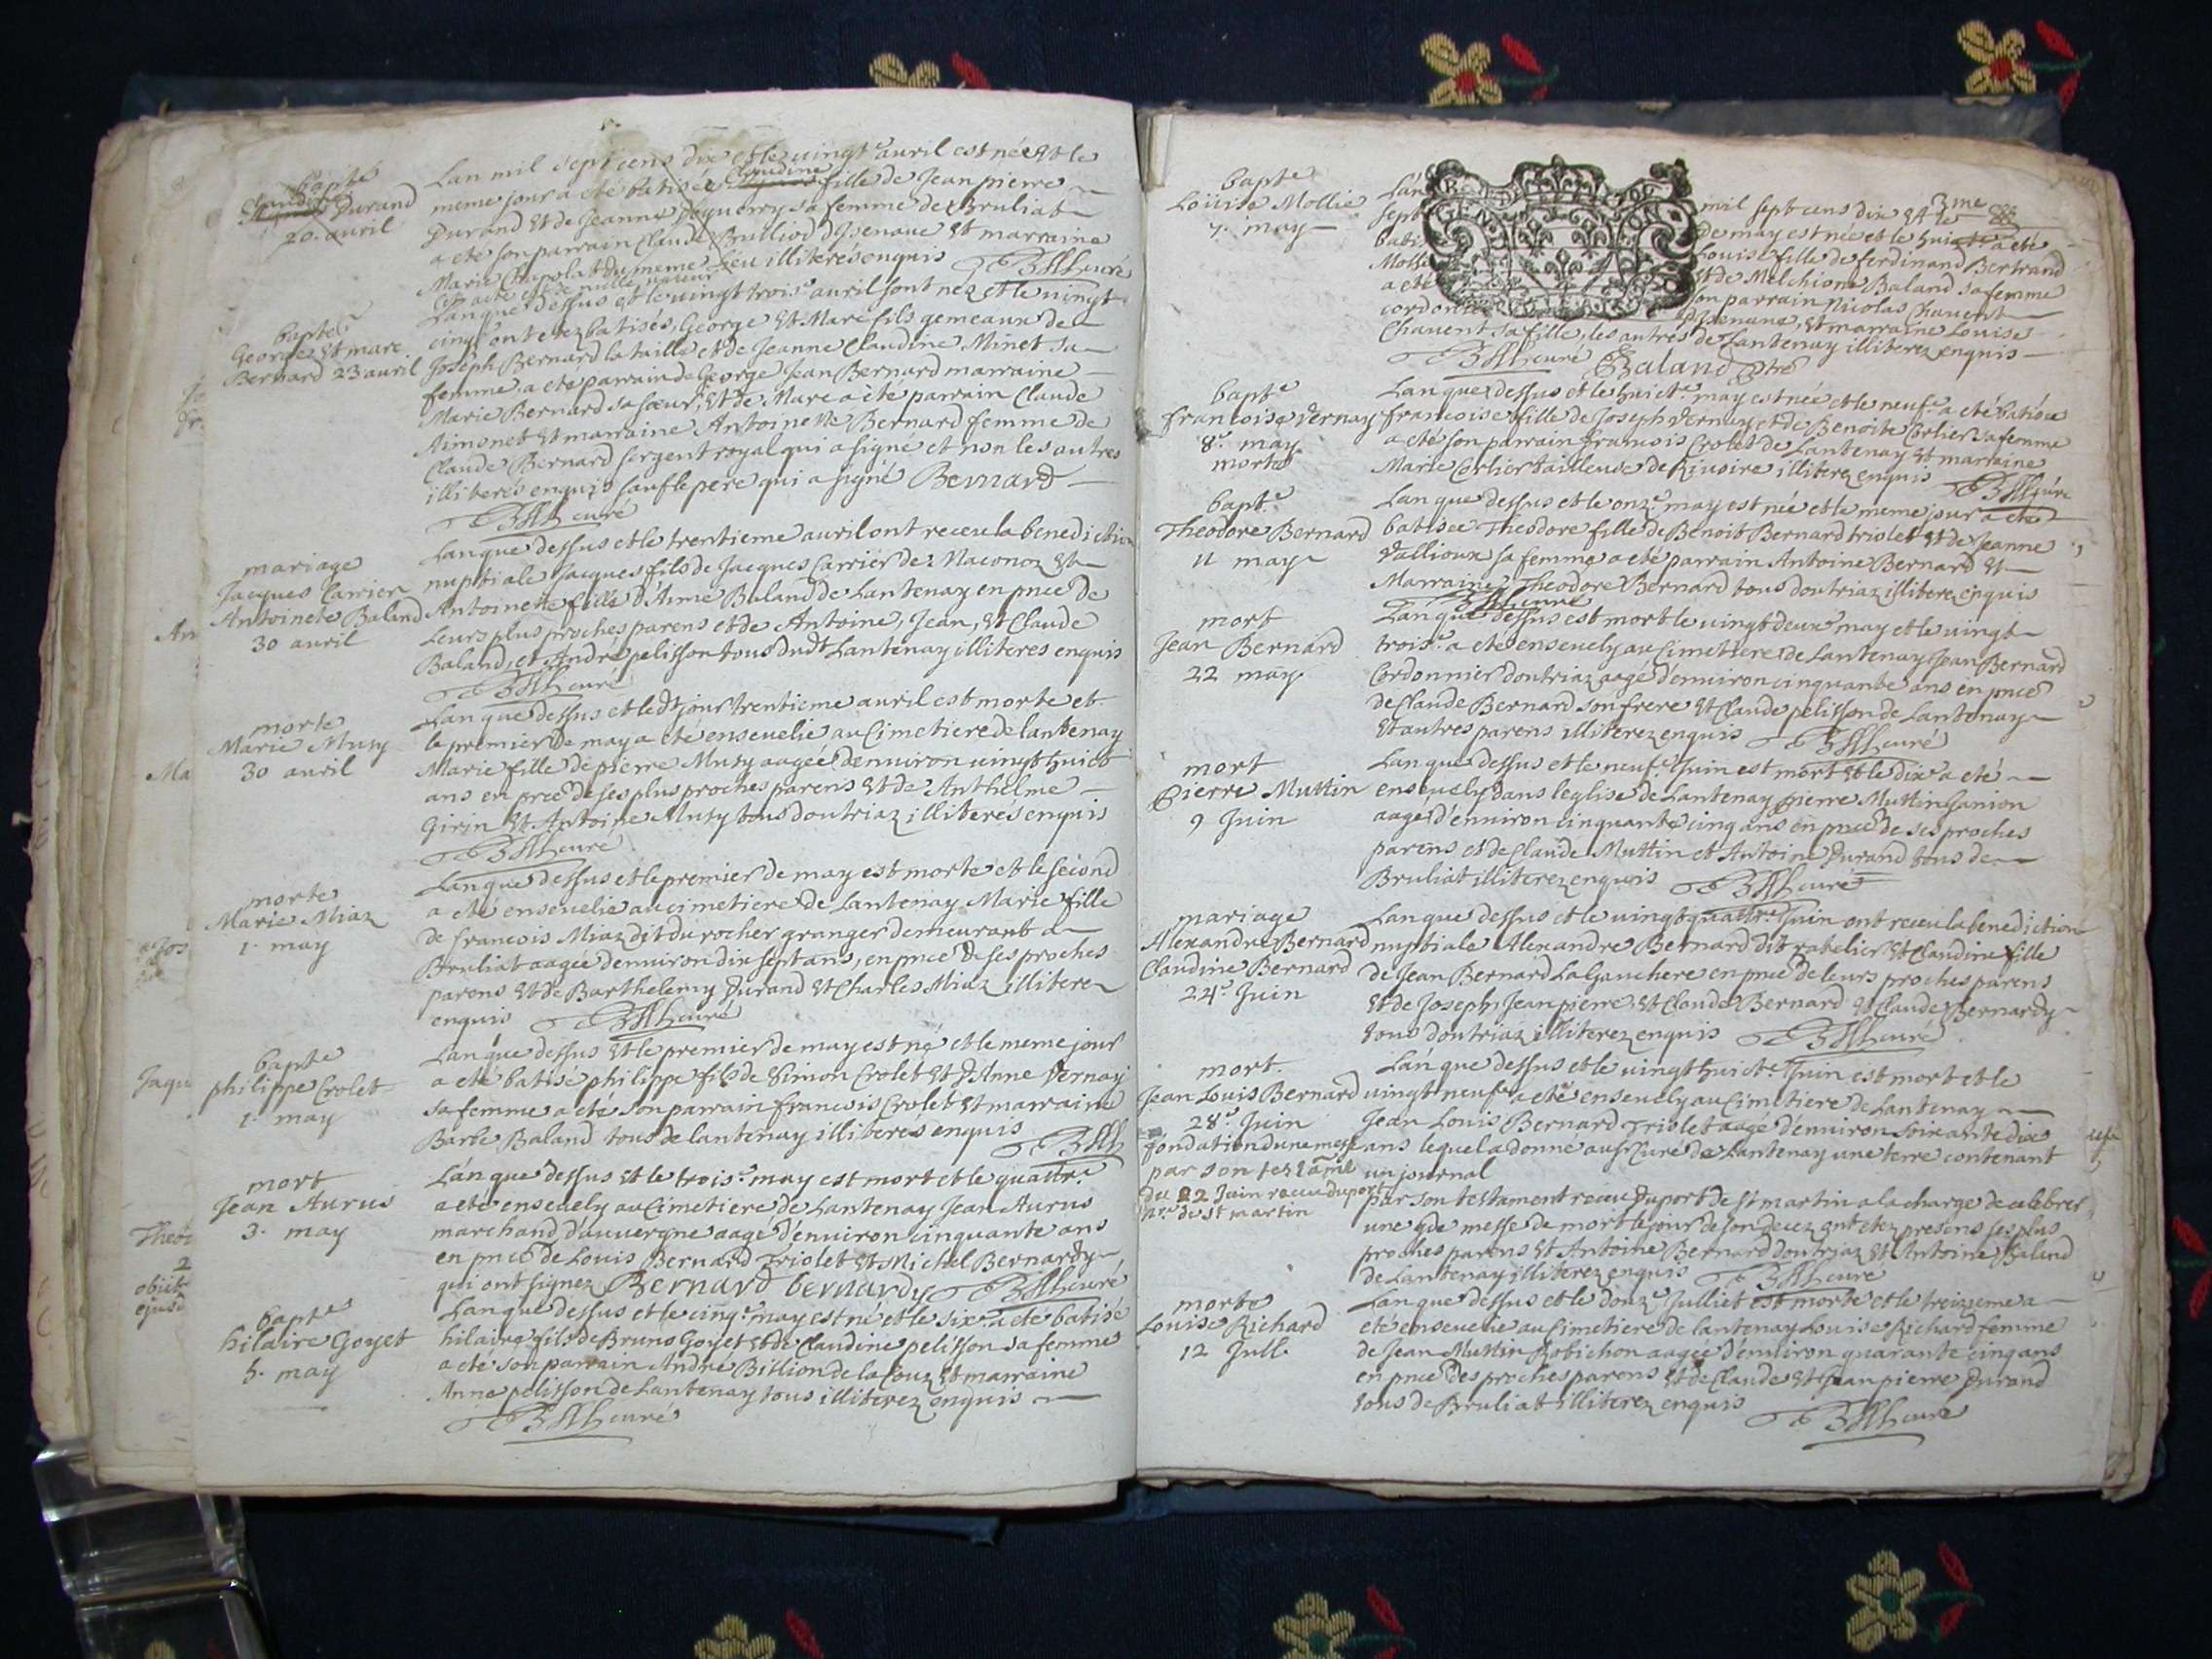 bapte
Claudine Durand
20. auril
Lan mil sept cens dix et le vingt.e auril est née et le
meme jour a eté batisée Claudine fille de Jean pierre
Durand et de Jeanne sa femme de Bruliat
a eté son parrain Claude Brulliod d'Isenaue et marraine
Marie Chapolat du meme Lieu illiterés enquis curé
bapte
George et marc
Bernard 23 auril
Lan que dessus et le vingt trois.e auril sont nez et le vingt
cinq.e ont etez batisés, George et Marc fils gemeaux de
Joseph Bernard la taille et de Jeanne Claudine Minet sa
femme a eté parrain de George Jean Bernard marraine
Marie Bernard sa sœur, et de Marc a eté parrain Claude
Aimonet et marraine Antoinette Bernard femme de
Claude Bernard sergent royal qui a signé et non les autres
illiterés enquis sauf le pere qui a signé Bernard
curé
mariage
Jacques Carrier
Antoinete Baland
30 auril
Lan que dessus et le trentieme auril ont receu la benediction
nuptiale Jacques fils de Jacques Carrier de Naconoz et
Antoinette fille d'Aime Baland de Lantenay en pnce de
Leurs plus proches parens et de Antoine, Jean, et Claude
Baland, et André pelisson tous dudt Lantenay illiteres enquis
curé
morte
Marie Musy
30 auril
Lan que dessus et led.t jour trentieme auril est morte et
le premier de may a eté enseuelie au Cimetiere de lantenay
Marie fille de pierre Musy aagée d'enuiron vingt huict
ans en pnce de ses plus proches parens et de Anthelme
Girin et Antoine Musy tous doutriaz illiterés enquis
curé
morte
Marie Miaz
1. may
Lan que dessus et le premier de may est morte et le second
a eté enseuelie au cimetiere de Lantenay Marie fille
de francois Miaz dit du rocher granger demeurant a
Bruliat aagée denuiron dix sept ans, en pnce de ses proches
parens et de Barthelemy Durand et Charles Miaz illiterez
enquis curé
bapte
philippe Crolet
1. may
Lan que dessus et le premier de may est né et le meme jour
a eté batisé philippe fils de Simon Crolet et d'Anne Vernay
sa femme a eté son parrain francois Crolet et marraine
Barbe Baland tous de lantenay illiteres enquis
mort
Jean Aurus
3. may
Lan que dessus et le trois.e may est mort et le quattr.e
a eté enseuely au Cimetiere de Lantenay Jean Aurus
marchand d'auuergne aagé d'enuiron cinquante ans
en pnce de Louis Bernard Triolet et Michel Bernardy
qui ont signez Bernard bernardy curé
bapte
hilaire Goyet
5. may
Lan que dessus et le cinq.e may est né et le six.e a eté batisé
hilaire fils de Bruno Goyet et de Claudine pelisson sa femme
a eté son parrain André Billion de la Couz et marraine
Anne pelisson de Lantenay tous illiterez enquis
curé
bapte
Loüise Mollie
7. may
Lan mil sept cens dix et le 3me
sept de may est née et le huict.e a eté
batis Louise fille de ferdinand Bertrand
Molli et de Melchione Baland sa femme
a eté son parrain Nicolas Chauent
cordonier d'Isenaue, et marraine Louise
Chauent sa fille, les autres de Lantenay illiterez enquis
curé Baland ptre
bapte
francoise Vernay
8. may
morte
Lan que dessus et le huict.e may est née et le neuf.e a eté batisée
francoise fille de Joseph Vernay et de Benoite Corlier sa femme
a eté son parrain francois Crolet de Lantenay et marraine
Marie Corlier tailleuse de Riuoire illiterez enquis curé
bapte
Theodore Bernard
11 may
Lan que dessus et le onz.e may est née et le meme jour a eté
batisée Theodore fille de Benoit Bernard triolet et de Jeanne
Vallioux sa femme a eté parrain Antoine Bernard et
Marraine Theodore Bernard tous doutriaz illiterez enquis
curé
mort
Jean Bernard
22 may
Lan que dessus est mort le vingt deux.e may et le vingt
trois.e a eté enseuely au Cimetiere de Lantenay Jean Bernard
Cordonnier doutriaz aagé d'enuiron cinquante ans en pnce
de Claude Bernard son frere et Claude pelisson de Lantenay
et autres parens illiterez enquis curé
mort
Pierre Muttin
9 Juin
Lan que dessus et le neuf.e Juin est mort et le dix.e a eté
enseuely dans leglise de Lantenay pierre Muttin Janion
aagé d'enuiron cinquante cinq ans en pnce de ses proches
parens et de Claude Muttin et Antoine Durand tous de
Bruliat illiterez enquis curé
mariage
Alexandre Bernard
Claudine Bernard
24.e Juin
Lan que dessus et le vingt quattr.e Juin ont receu la benediction
nuptiale Alexandre Bernard dit rabelier et Claudine fille
de Jean Bernard La Gauchere en pnce de leurs proches parens
et de Joseph, Jean pierre, et Claude Bernard et Claude Bernardy
tous doutriaz illiterez enquis curé
mort.
Jean Louis Bernard
28.e Juin
fondation d'une messe
par son testame
du 22 Juin receu duport
n.re de St martin
Lan que dessus et le vingt huict.e Juin est mort et le
vingt neuf.e a eté enseuely au Cimetiere de Lantenay
Jean Louis Bernard Triolet aagé d'enuiron soixante dix
ans lequel a donné au sr Curé de Lantenay une terre contenant
un journal
par son testament receu Duport de St martin a la charge de celebrer
une gde messe de mort le jour de son decez ont etez presens ses plus
proches parens et Antoine Bernard doutriaz et Antoine Baland
de Lantenay illiterez enquis curé
morte
Louise Richard
12 Jull.
Lan que dessus et le douz.e Julliet est morte et le treizieme a
eté enseuelie au Cimetiere de lantenay Louise Richard femme
de Jean Muttin Robichon aagée d'enuiron quarante cinq ans
en pnce des proches parens et de Claude et Jean pierre Durand
tous de Bruliat illiterez enquis
curé